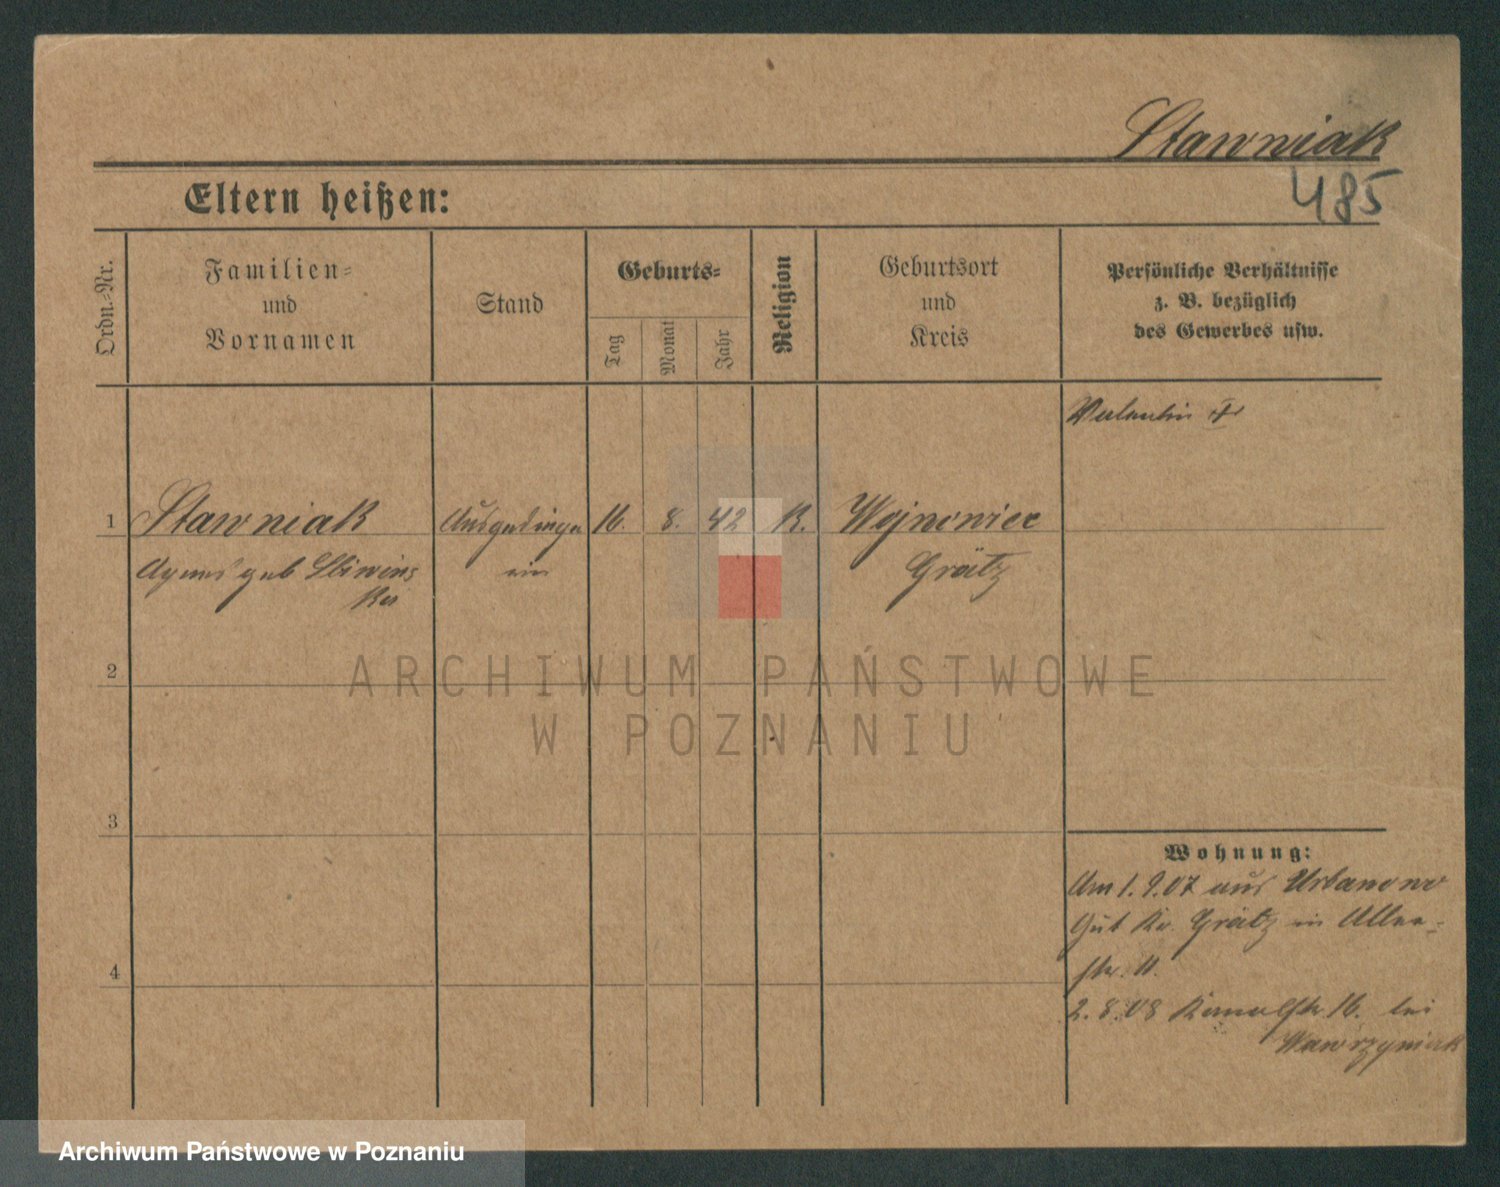 Stawniak
485
Eltern heißen:
Ordn.-Nr.
Familien-
und
Vornamen
Stand
Geburts-
Tag
Monat
Jahr
Religion
Geburtsort
und
Kreis
Persönliche Verhältnisse
z. B. bezüglich
des Gewerbes usw.
Valentin †
1 Stawniak Ausgedinge 16. 8. 42 K. Wojnowiec
Agnes geb Sliwins in Grätz
ka
2
ARCHIWUM PAŃSTWOWE
W POZNANIU
3
Wohnung:
Am 1.9.07 aus Urbanowo
Gut Kr. Grätz in Allee-
4
str. 11.
2.8.08 Kanalstr. 16. bei
Wawrzyniak
Archiwum Państwowe w Poznaniu